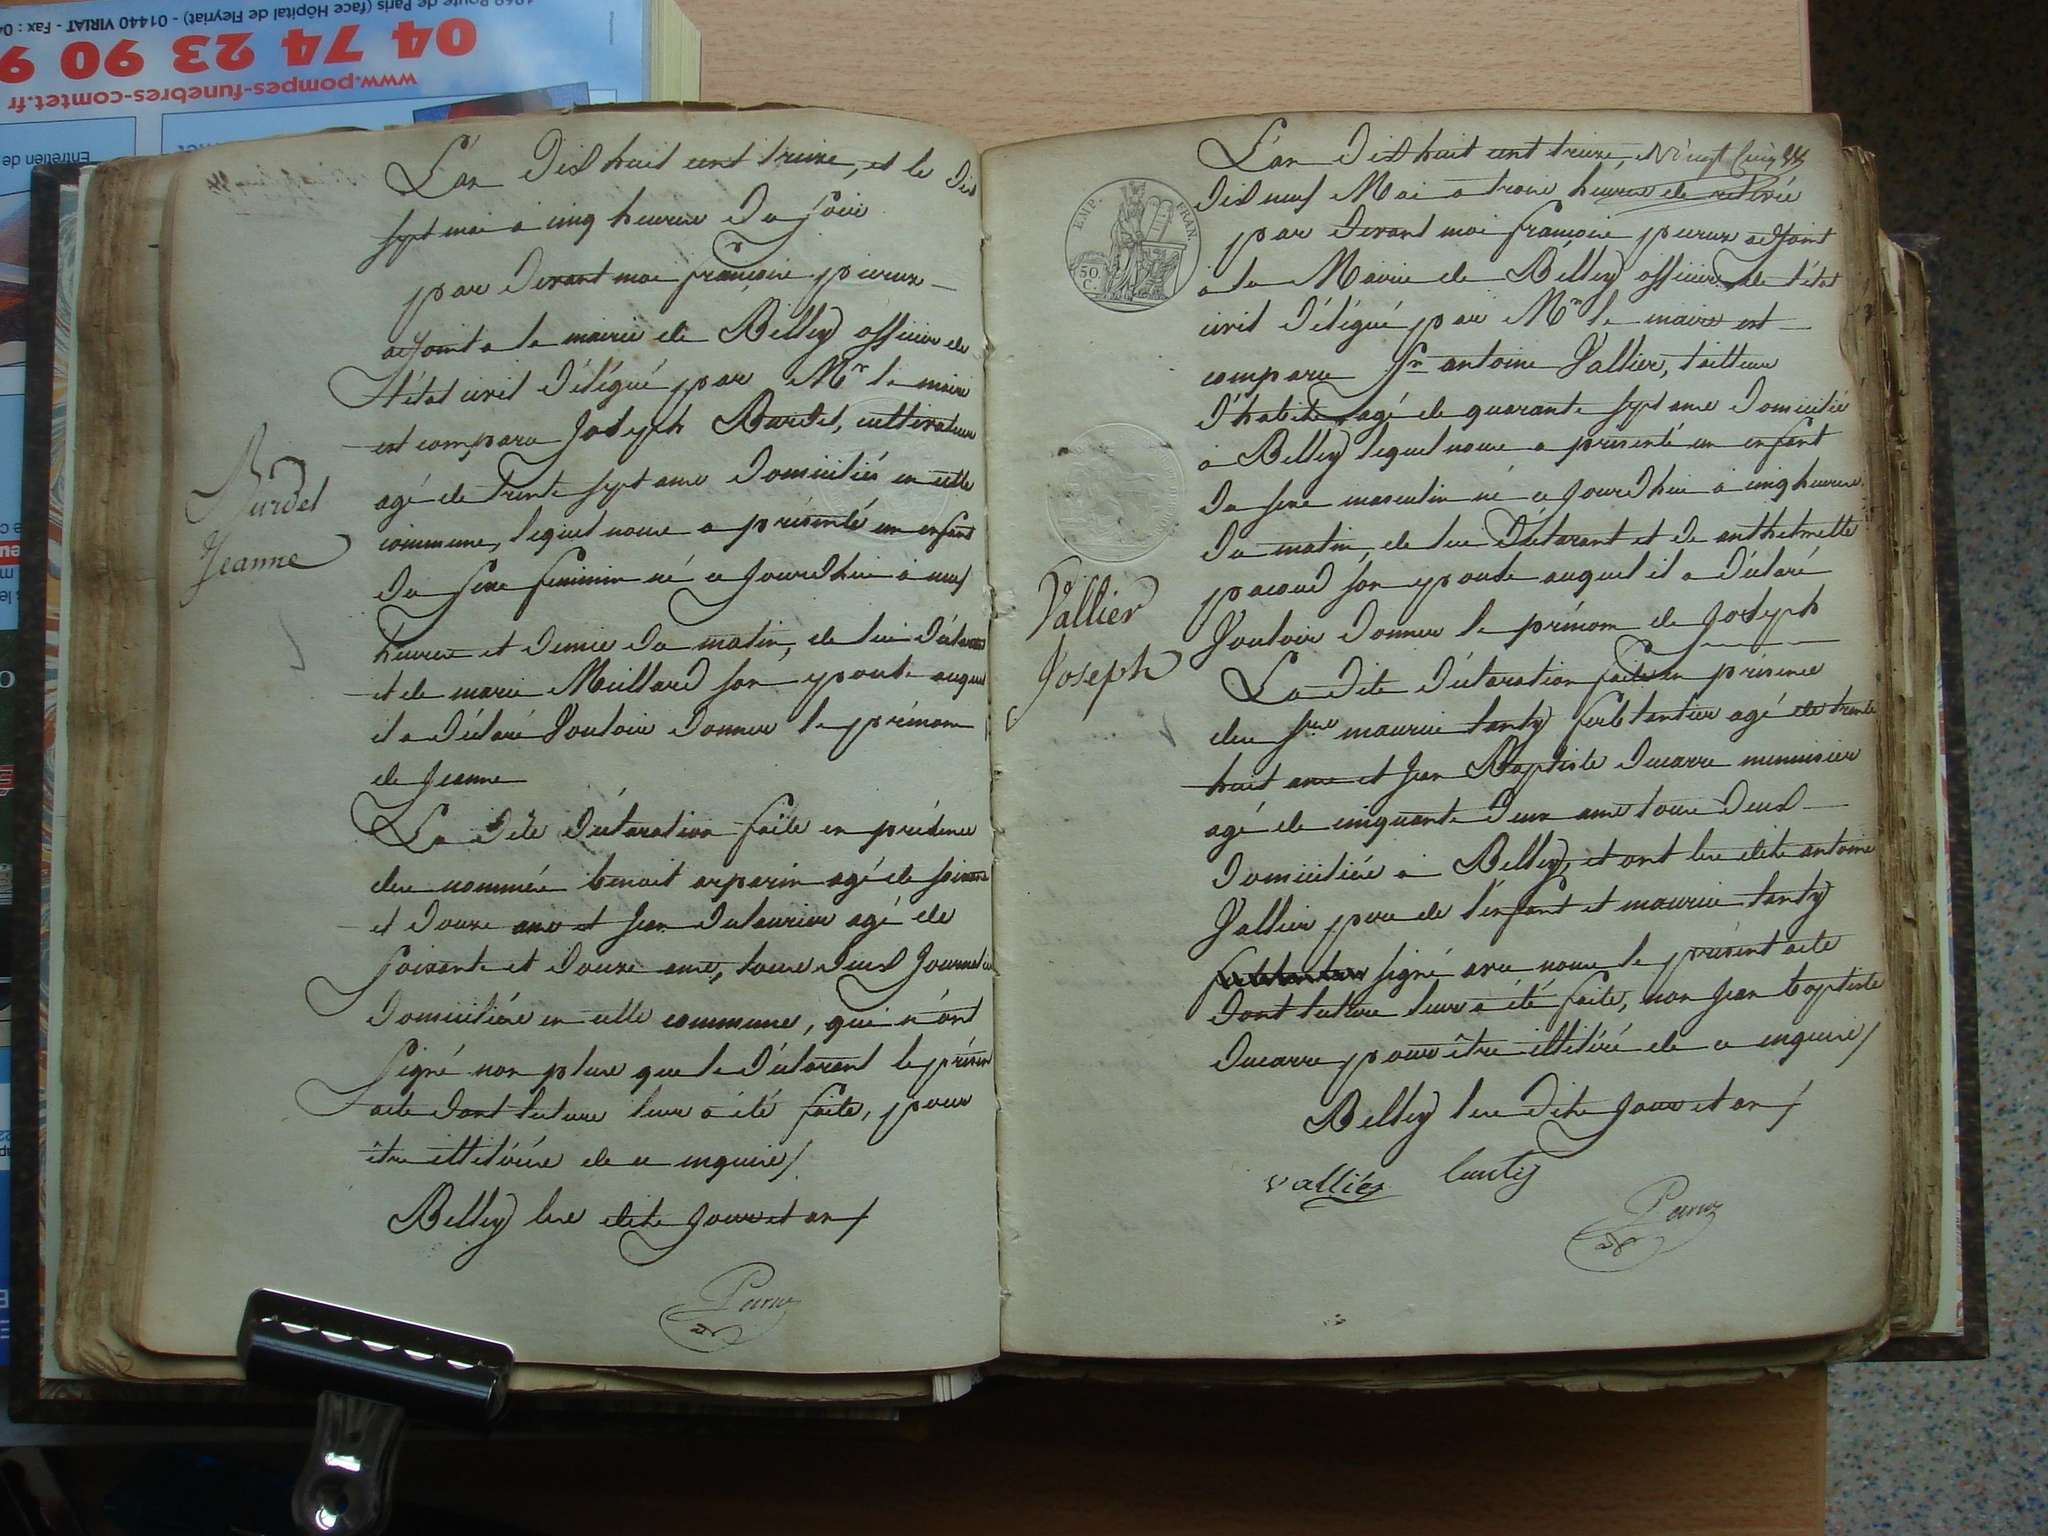 1868 Route de Paris (face Hôpital de Fleyriat) - 01440 VIRIAT - Fax : 04
04 74 23 90 9
www.pompes-funebres-comtet.fr
Entretien de
L'an Dix huit cent treize, et le dix
sept mai a cinq heures du soir
par devant moi françois
adjoint a la mairie de Belley officier de
l'état civil délégué par Mr le maire
est comparu Joseph Burdet, cultivateur
agé de trente sept ans domicilié en cette
commune, lequel nous a présenté un enfant
du sexe feminin né ce jourdhui à neuf
heures et demie du matin, de lui déclarant
et de marie Millard son épouse auquel
il a déclaré Vouloir donner le prénom
de Jeanne
La dite déclaration faite en présence
des nommés benoit arparin agé de soixante
et douze ans et Jean dulaurier agé de
soixante et douze ans, tous deux Journaliers
Domiciliés en cette commune, qui n'ont
signé non plus que le déclarant le présent
acte dont lecture leur a été faite, pour
être illitérés de ce enquis/
Belley les dits Jour et an/
Burdet
Jeanne
L'an Dix huit cent treize, et
dix neuf Mai a trois heures de relevée
par devant moi françois adjoint
a la Mairie de Belley officier de l'état
civil délégué par Mr le maire est
comparu Sr antoine Vallier, tailleur
d'habits agé de quarante sept ans domicilié
a Belley lequel nous a présenté un enfant
du sexe masculin né ce jourdhui à cinq heures
du matin, de lui déclarant et de anthelmette
pacoud son épouse auquel il a déclaré
Vouloir donner le prénom de Joseph
La dite déclaration faite en présence
des Srs maurice lanty ferblantier agé de trente
huit ans et Jean Baptiste ducarre menuisier
agé de cinquante deux ans tous deux
domiciliés a Belley, et ont les dits antoine
Vallier père de l'enfant et maurice lanty
signé avec nous le présent acte
dont lecture leur a été faite, non Jean baptiste
ducarre pour être illitéré de ce enquis/
Belley les dits Jour et an/
vallier lantij
Vallier
Joseph
EMP. FRAN.
50
C.